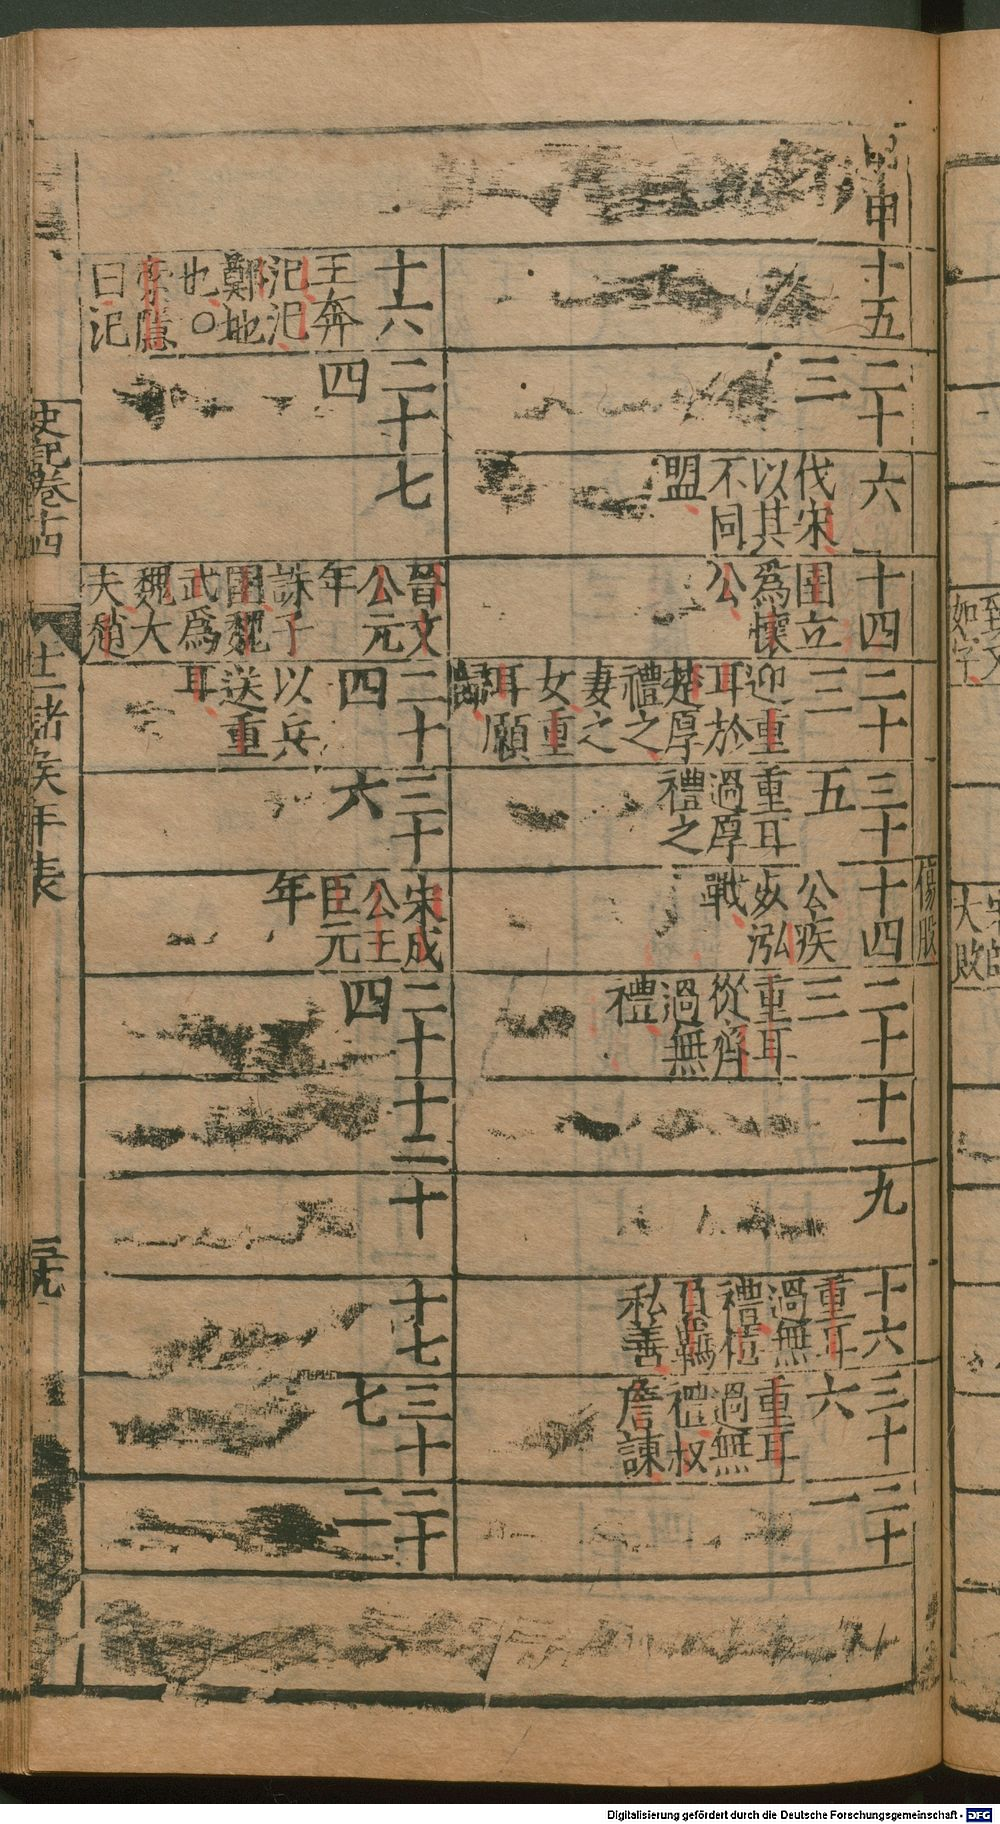 甲申
十五
二十
三
六
伐宋
以其
不同
盟
十四
圉立
爲懷
公
二十
三
迎重
耳於
楚厚
禮之
妻之
女重
耳願
歸
三十
五
重耳
過厚
禮之
傷股
十四
公疾
死泓
戰
二十
三
重耳
從齊
過無
禮
十一
九
十六
重耳
過無
禮僖
負羈
私善
三十
六
重耳
過無
禮叔
詹諫
二十
一
十六
王奔
汜汜
鄭地
也○
索隱
曰汜
二十
四
七
晉文
公元
年
誅子
圉魏
武爲
魏大
夫趙
二十
四
以兵
送重
耳
三十
六
宋成
公王
臣元
年
二十
四
十二
十
十七
三十
七
二十
二
史記卷十四
十二諸侯年表
至文
如字
宋師
大敗
Digitalisierung gefördert durch die Deutsche Forschungsgemeinschaft - DFG